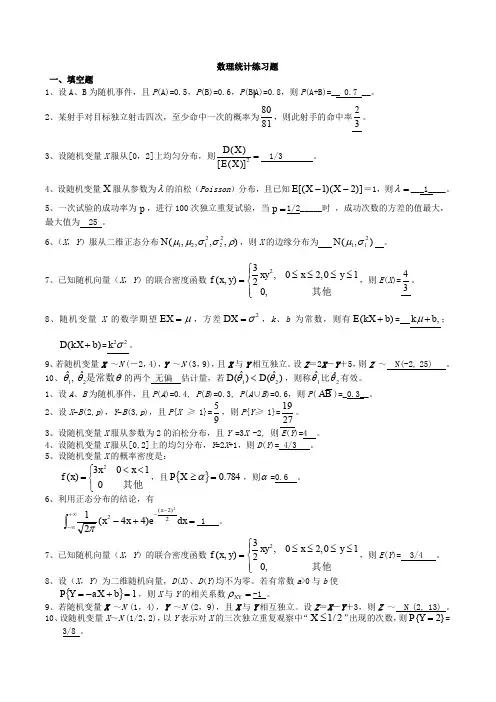 数理统计练习题
一、填空题
1、设A、B为随机事件，且P(A)=0.5，P(B)=0.6，P(B|A)=0.8，则P(A+B)=__ 0.7 __。
2、某射手对目标独立射击四次，至少命中一次的概率为80/81，则此射手的命中率2/3。
3、设随机变量X服从[0，2]上均匀分布，则D(X)/[E(X)]²= 1/3 。
4、设随机变量X服从参数为λ的泊松（Poisson）分布，且已知E[(X−1)(X−2)]＝1，则λ=___1____。
5、一次试验的成功率为p，进行100次独立重复试验，当p=1/2_____时 ，成功次数的方差的值最大，
最大值为 25 。
6、（X，Y）服从二维正态分布N(μ₁,μ₂,σ₁²,σ₂²,ρ)，则X的边缘分布为 N(μ₁,σ₁²) 。
7、已知随机向量（X，Y）的联合密度函数f(x,y)={3/2 xy², 0≤x≤2,0≤y≤1 0, 其他，则E(X)=4/3。
8、随机变量X的数学期望EX=μ，方差DX=σ²，k、b为常数，则有E(kX+b)= kμ+b,；
D(kX+b)=k²σ²。
9、若随机变量X ～N (−2，4)，Y ～N (3，9)，且X与Y相互独立。设Z＝2X－Y＋5，则Z ～ N(-2, 25) 。
10、θ̂₁, θ̂₂是常数θ的两个 无偏 估计量，若D(θ̂₁)<D(θ̂₂)，则称θ̂₁比θ̂₂有效。
1、设A、B为随机事件，且P(A)=0.4, P(B)=0.3, P(A∪B)=0.6，则P(AB̄)=_0.3__。
2、设X~B(2,p)，Y~B(3,p)，且P{X ≥ 1}=5/9，则P{Y≥ 1}=19/27。
3、设随机变量X服从参数为2的泊松分布，且Y =3X -2, 则E(Y)=4 。
4、设随机变量X服从[0,2]上的均匀分布，Y=2X+1，则D(Y)= 4/3 。
5、设随机变量X的概率密度是：
f(x)={3x² 0<x<1 0 其他，且P{X≥α}=0.784，则α=0.6 。
6、利用正态分布的结论，有
∫_{−∞}^{+∞} 1/√2π (x²−4x+4)e^{−(x−2)²/2}dx= 1 。
7、已知随机向量（X，Y）的联合密度函数f(x,y)={3/2 xy², 0≤x≤2,0≤y≤1 0, 其他，则E(Y)= 3/4 。
8、设（X，Y）为二维随机向量，D(X)、D(Y)均不为零。若有常数a>0与b使
P{Y=−aX+b}=1，则X与Y的相关系数ρ_XY=-1 。
9、若随机变量X ～N (1，4)，Y ～N (2，9)，且X与Y相互独立。设Z＝X－Y＋3，则Z ～ N (2, 13) 。
10、设随机变量X～N (1/2，2)，以Y表示对X的三次独立重复观察中“X≤1/2”出现的次数，则P{Y=2}=
3/8 。